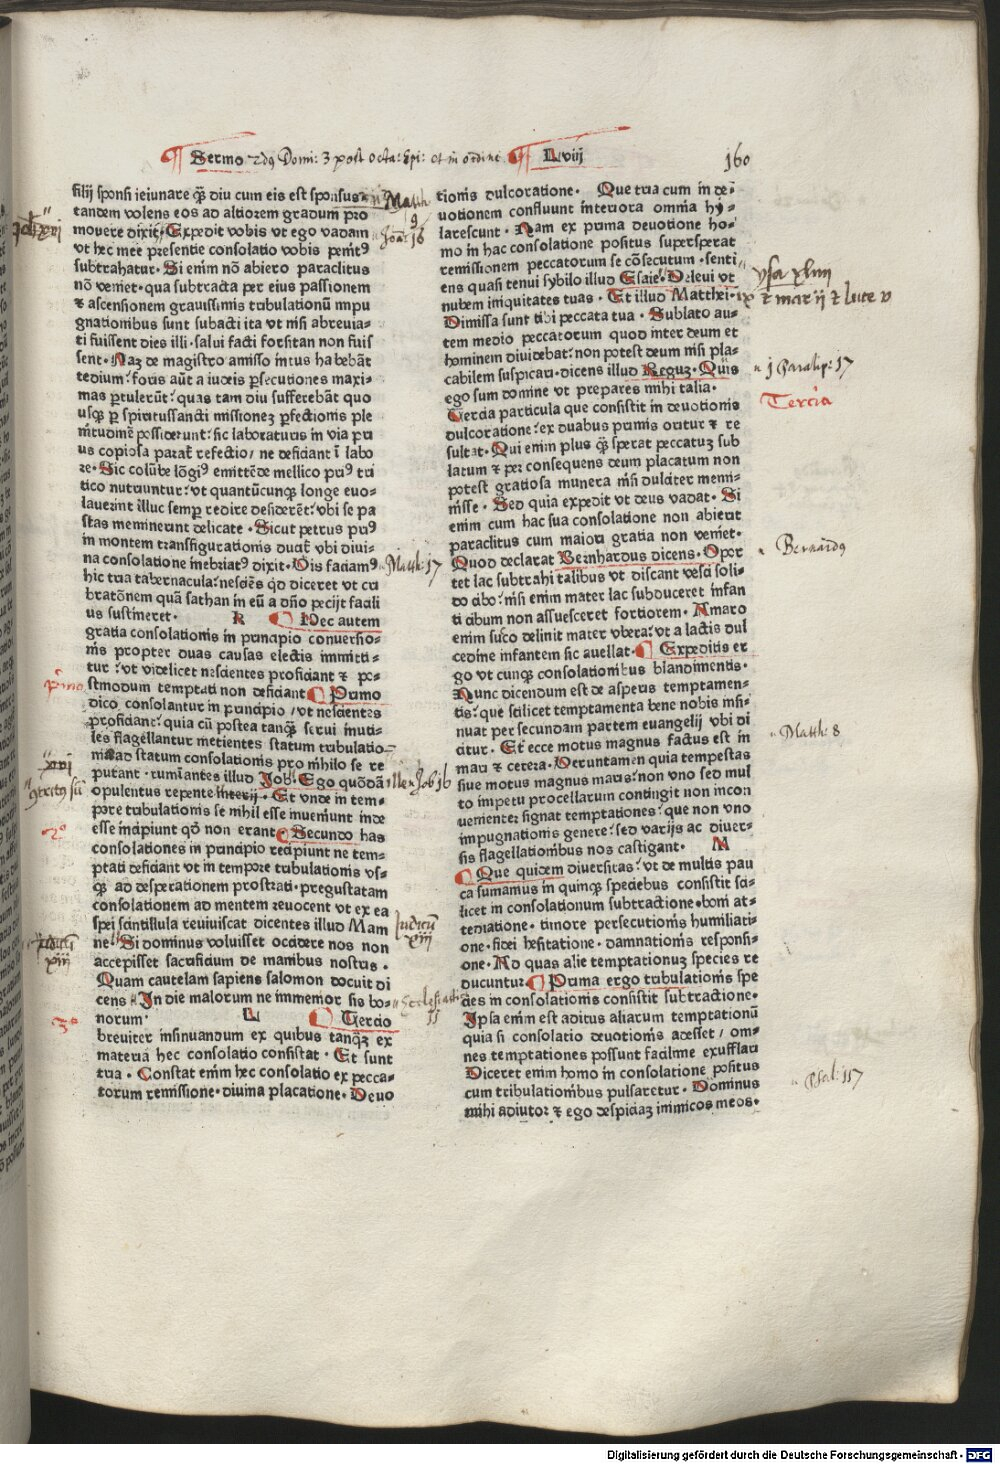 Sermo 2dus Domi: 3 post octa: Epi: et in ordine Lviij 160
filij sponsi ieiunare qȝ diu cum eis est sponsus
tandem volens eos ad altiorem gradum pro
mouere dixit. Expedit vobis vt ego vadam
vt hec mee presentie consolatio vobis penitꝰ
subtrahatur. Si enim nō abiero paraclitus
nō veniet. qua subtracta per eius passionem
⁊ ascensionem grauissimis tribulationū impu
gnationibus sunt subacti ita vt nisi abreuia-
ti fuissent dies illi. salui facti forsitan non fuis
sent. Naȝ de magistro amisso intus habebāt
tedium: foris aūt a iudeis p̄secutiones maxi-
mas ꝑtulerūt: quas tam diu sufferebāt quo
usqȝ ꝑ spiritussancti missioneȝ ꝑfectionis ple
nitudinē possiderunt: sic laboraturis in via pri
us copiosa parat̄ refectio/ ne deficiant ī labo
re. Sic colūbe lōgiꝰ emittēde mellico priꝰ tri
tico nutriuntur: vt quantūcunqȝ longe euo-
lauerint illuc semꝑ redire desiderēt: vbi se pa
stas meminerunt delicate. Sicut petrus priꝰ
in montem transfigurationis ducat̄ vbi diui-
na consolatione inebriatꝰ dixit. Vis faciamꝰ
hic tria tabernacula: nesciēs qd diceret vt cri
bratōnem quā sathan in eū a dño petijt facili
us sustineret. K Nec autem
gratia consolationis in principio conuersio-
nis propter duas causas electis immitti-
tur: vt videlicet nescientes proficiant ⁊ po-
stmodum temptati non deficiant Primo
dico consolantur in principio/ vt nescientes
proficiant: quia cū postea tanqȝ serui inuti-
les flagellantur metientes statum tribulatio-
nis ad statum consolationis pro nihilo se re
putant. ruminantes illud Job. Ego quōdā
opulentus repente interij. Et vnde in tem-
pore tribulationis se nihil esse inueniunt inde
esse incipiunt qō non erant Secundo has
consolationes in principio recipiunt ne tem-
ptati deficiant vt in tempore tribulationis vs-
qȝ ad desperationem prostrati. pregustatam
consolationem ad mentem reuocent vt ex ea
spei scintillula reuiuiscat dicentes illud Mam
ne Si dominus voluisset occidere nos non
accepisset sacrificium de manibus nostris.
Quam cautelam sapiens salomon docuit di
cens In die malorum ne immemor sis bo-
norum L Tercio
breuiter insinuandum ex quibus tanqȝ ex
materia hec consolatio consistat. Et sunt
tria. Constat enim hec consolatio ex pecca-
torum remissione. diuina placatione. Deuo
tionis dulcoratione. Que tria cum in de-
uotionem confluunt interiora omnia hy-
larescunt. Nam ex prima deuotione ho-
mo in hac consolatione positus supersperat
remissionem peccatorum se cōsecutum. senti
ens quasi tenui sybilo illud Esaie. Deleui vt
nubem iniquitates tuas. Et illud Matthei.
Dimissa sunt tibi peccata tua. Sublato au-
tem medio peccatorum quod inter deum et
hominem diuidebat: non potest deum nisi pla-
cabilem suspicari. dicens illud Reguȝ. Quis
ego sum domine vt prepares mihi talia.
Tercia particula que consistit in deuotionis
dulcoratione: ex duabus primis oritur ⁊ re
sultat. Qui enim plus qȝ sperat peccatuȝ sub
latum ⁊ per consequens deum placatum non
potest gratiosa munera nisi dulciter memi-
nisse. Sed quia expedit vt deus vadat. Si
enim cum hac sua consolatione non abierit
paraclitus cum maiori gratia non veniet.
Quod declarat Bernhardus dicens. Opor
tet lac subtrahi talibus vt discant vesci soli-
do cibo: nisi enim mater lac subduceret infan
ti cibum non assuesceret fortiorem. Amaro
enim suco delinit mater vbera: vt a lactis dul
cedine infantem sic auellat. Expeditis er
go vt cunqȝ consolationibus blandimentis.
Nunc dicendum est de asperis temptamen-
tis: que scilicet temptamenta bene nobis insi-
nuat per secundam partem euangelij vbi di
citur. Et ecce motus magnus factus est in
mari ⁊ cetera. Veruntamen quia tempestas
siue motus magnus maris: non vno sed mul
to impetu procellarum contingit non incon
uenienter signat temptationes: que non vno
impugnationis genere: sed varijs ac diuer-
sis flagellationibus nos castigant. M
Que quidem diuersitas: vt de multis pau
ca sumamus in quinqȝ speciebus consistit sci-
licet in consolationum subtractione. boni at-
tediatione. timore persecutionis humiliati-
one. fidei hesitatione. damnationis responsi-
one. Ad quas alie temptationuȝ species re
ducuntur Prima ergo tribulationis spe
cies in consolationis consistit subtractione.
Ipsa enim est aditus aliarum temptationū
quia si consolatio deuotionis adesset/ om-
nes temptationes possunt facilime exufflari
Diceret enim homo in consolatione positus
cum tribulationibus pulsaretur. Dominus
mihi adiutor ⁊ ego despiciaȝ inimicos meos.
Matth
9
Joā: 16
Matth: 17
primo
xvi
ille Job 16
2º
Judicū
xiij
xiij
Ecclesiasti
3º
ysa xliiij
ix ⁊ mar ij ⁊ luce v
j Paralip: 17
Tercia
Bernardꝰ
Matth: 8
Psal: 117
Digitalisierung gefördert durch die Deutsche Forschungsgemeinschaft - DFG